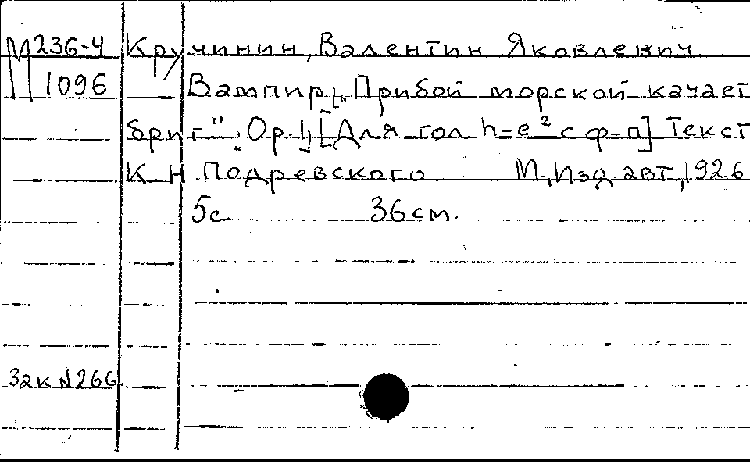 М 236-4 Кручинин, Валентин Яковлевич.
1096 Вампир. [„Прибой морской качает
бриг"„. Ор.] [Для гол h=e² с ф-п] Текст
К.Н. Подревского М, Изд авт, 1926
5с 36см.
Зак №266